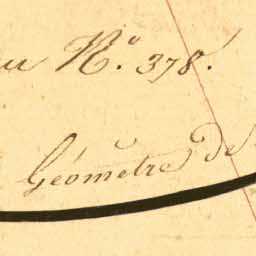 au N.º 378.
Géomètre De